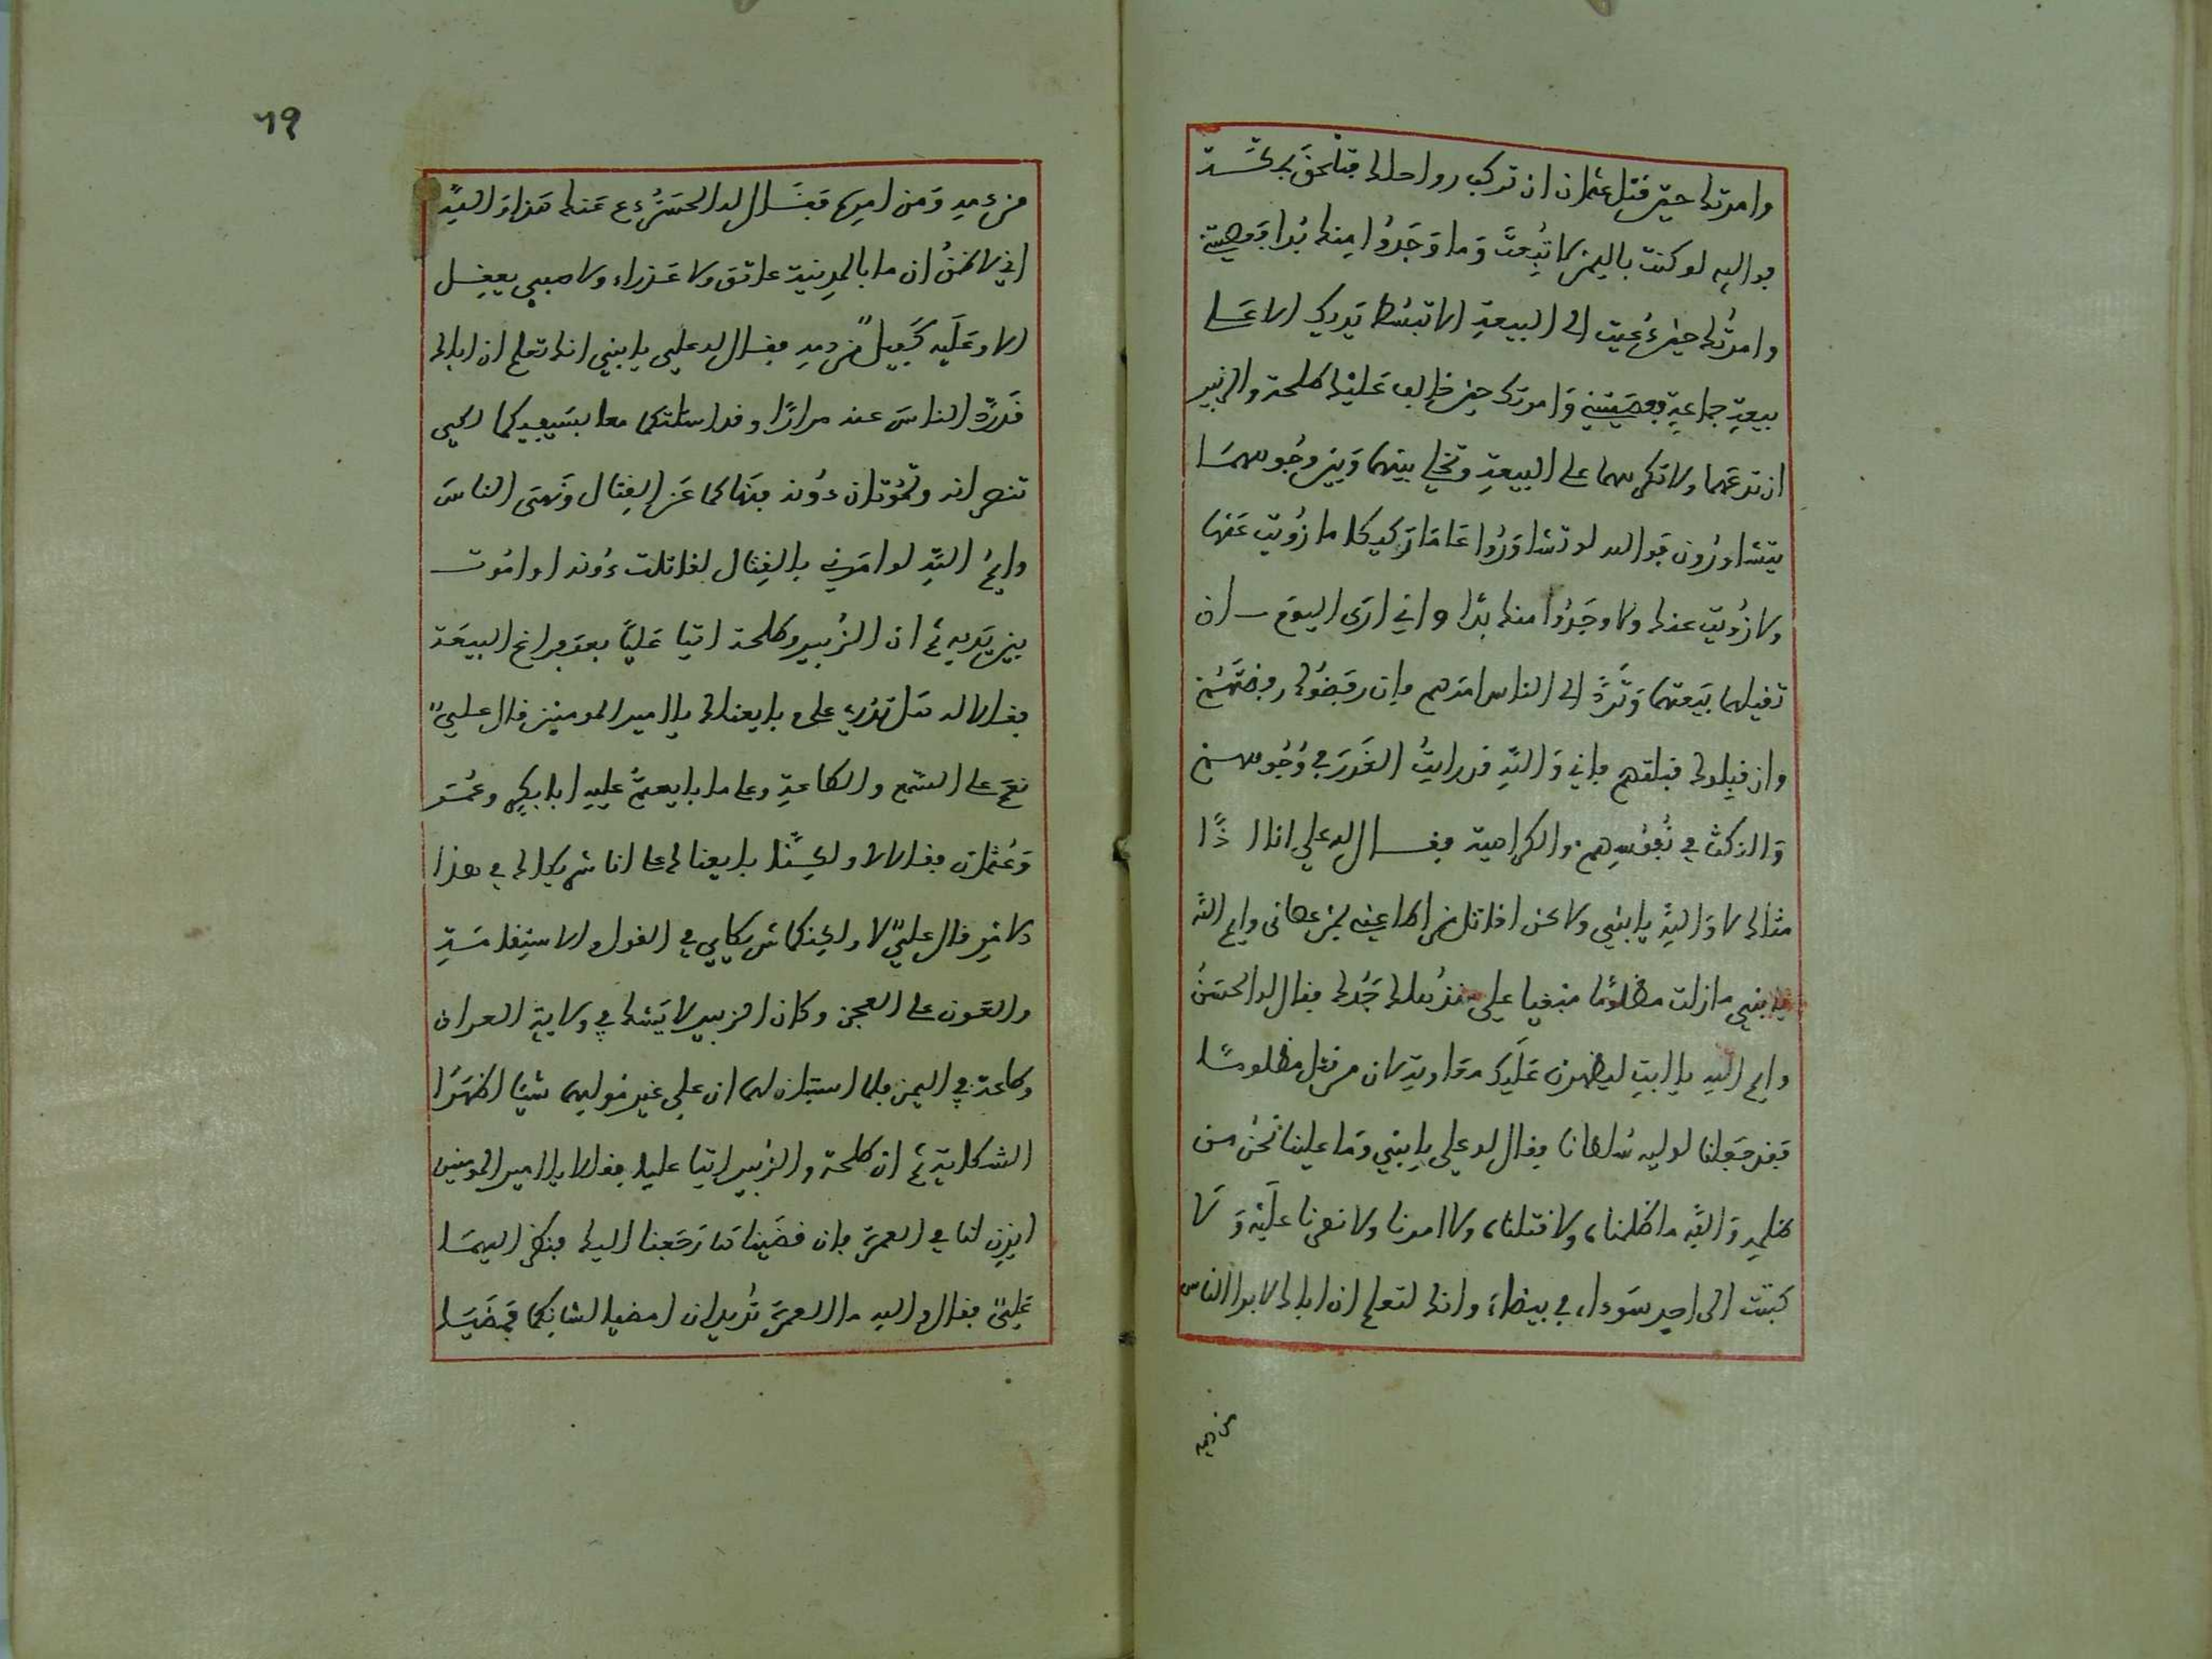 وامرتك حين قتل عثمان ان تركب رواحلك فتلحق بمكـــة
فوالله لو كنت باليمن لاتبعت وَما وَجَدُوا منك بُدا فَعصيتني
وامرتُك حين دُعيت الى البيعةِ الا تبسُط يَديك الا عَـلى
بيعةِ جماعةٍ فعصَيتني وَامرتك حين خالف عَليْك طلحة والزبير
ان تدعَهما ولا تكرههما على البيعةِ وتخلي بينهما وَبين وجُوههمَا
يتشاورُون فَوالله لو تشاوَرُوا عَامًا تركيكا ما زُويت عَنها
ولا زُويت عنك ولا وجَدُوا منك بدًا واني ارَى اليوم ان
تقيلهما بَيعتهما وَتردَّ الى الناس امرَهم فإن رفَضُوك رفضتَهُمْ
وان قبلوك قبلتهم فإني وَاللهِ قد رايتُ الغَدرَ في وُجُوههم
وَالنكث في نُفُوسِهم والكراهية فقــال له علي انا اذًا
مثلك لا وَاللهِ يا بنيي ولاكن اقاتل من اطاعني بمن عصاني وايم الله
يا بنيي ما زلت مظلومًا مبغيا علي منذ هلك جَدُك فقال له الحسَنُ
وايم الله يا ابتِ ليظهرن عَلَيك معَاوية لان من قتل مظلومـًـا
فقد جَعَلنا لوليه سُلطانا فقال له علي يا بنيي وَما علينا نحنُ من
ظلمِهِ وَاللهِ ما ظلمناه ولا قتلناه ولا امرنا ولا نصرنا عليْه وَلا
كتبت الى احدٍ سَوداء في بيضاءَ وانك لتعلم ان اباك لابرا الناس
من دمه
٦٩
من دمه وَمن امره فقــال له الحسَنُ دع عَنك هَذا وَاللهِ
اني لاظنُ ان ما بالمدينة عاتق ولا عَذراء ولا صبيي يعقِــل
الا وعَلَيه كَفِيلٌ من دمهِ فقال له عليي يا بنيي انك تعلم ان اباك
قَد ردَّ الناسَ عنه مرارًا وقد ارسلتكما معا بسَيفيكما لكيي
تنصرانه وتموُتان دُونه فنهاكما عَن القِتال وَنَهى الناسَ
وايمُ اللهِ لو امَرني بالقِتال لقاتلت دُونه او امُوت
بين يَديه ثم ان الزُبير وطلحة اتيا عَلياً بعدَ فراغ البيعَة
فقالا له هل تدري على ما بايعناك يا امير المومنين قال علـيٌّ
نعَم على السَّمع والطاعةِ وعلى ما بايعتمُ عليه ابا بكر وعُمـَر
وَعُثمان فقالا لا ولكنَّا بايعناك على انا شريكاك في هذا
الامر قال عليٌّ لا ولكِنكما شريكايي في القول والاستقامَـةِ
والعَون على العجز وكان الزبير لا يَشك في ولاية العراق
وطلحة في اليمن فلما استبان لهما ان علي غير مُوليهما شيئا اظهَرا
الشكاية ثم ان طلحة والزبير اتيا عليا فقالا يا امير المومنين
ايذن لنا في العمرة فإن قضَيناها رَجَعنا اليك فنظر اليهمَـا
عَليٌّ فقال والله ما العمرةَ تُريدان امضيا لشانكما فمضَيَـا